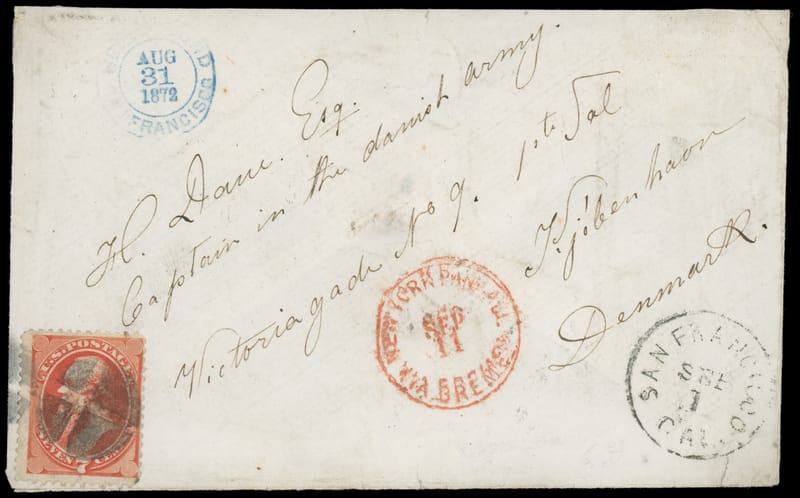 AUG
31
1872
FRANCISCO
H. Dane. Esq.
Captain in the danish army.
Victoriagade No 9. 1ste Sal
Kjöbenhavn
Denmark.
NEW YORK PAID ALL
SEP
11
VIA BREMEN
SAN FRANCISCO
1
CAL.
U.S. POSTAGE
SEVEN 7 CENTS